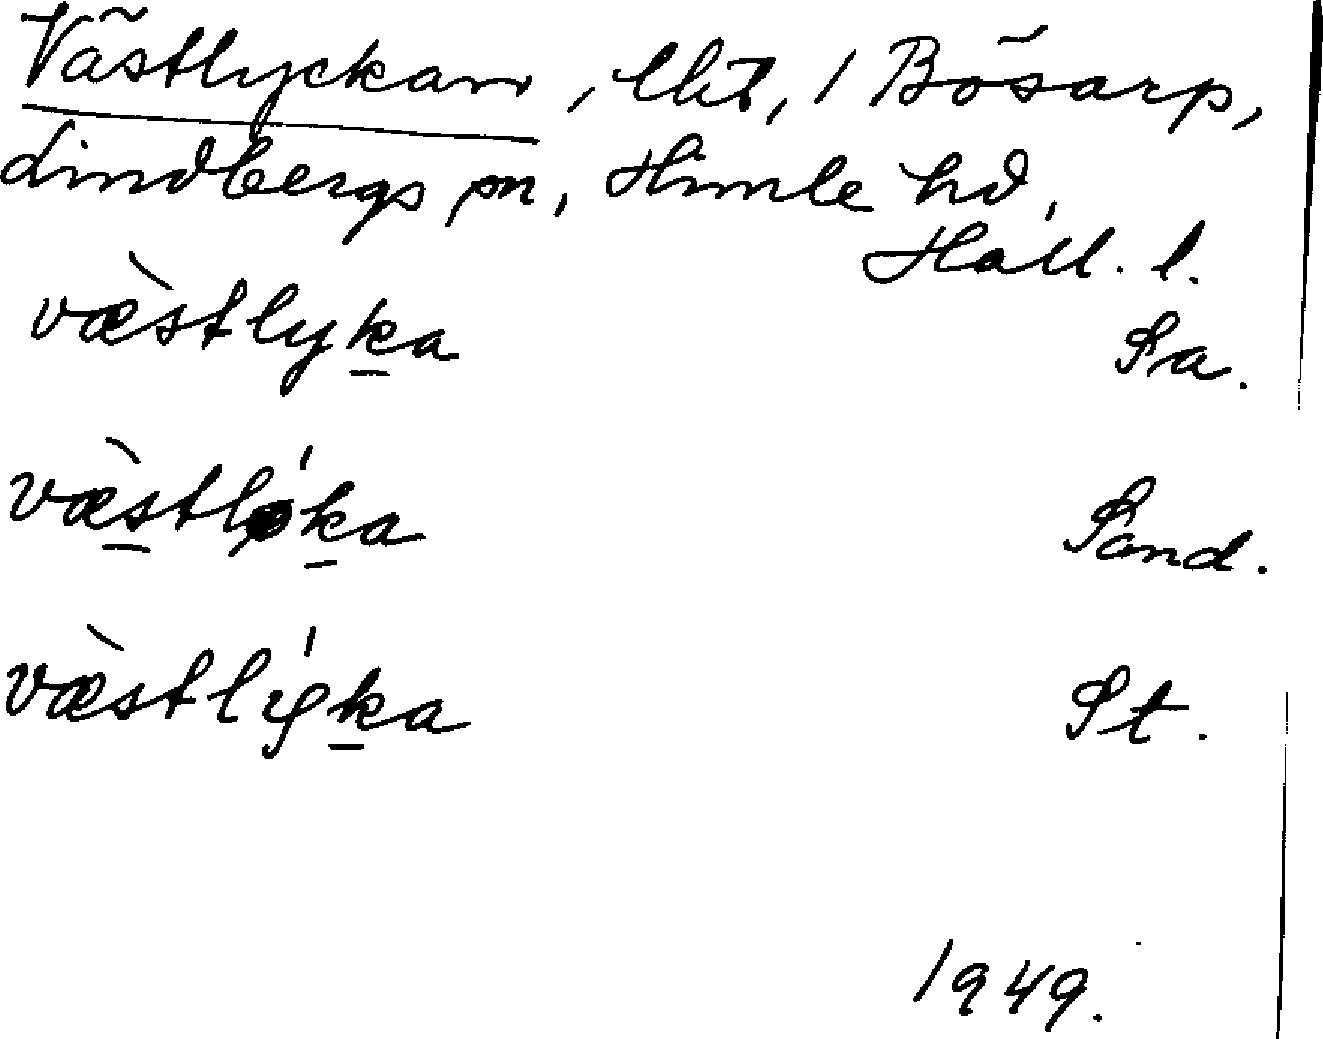 Västlyckan, lht, 1 Bösarp,
Lindbergs sn, Himle hd,
Hall. l.
væ̀stlyka Sa.
væ̀stlýka Sand.
væ̀stlýka St.
1949.